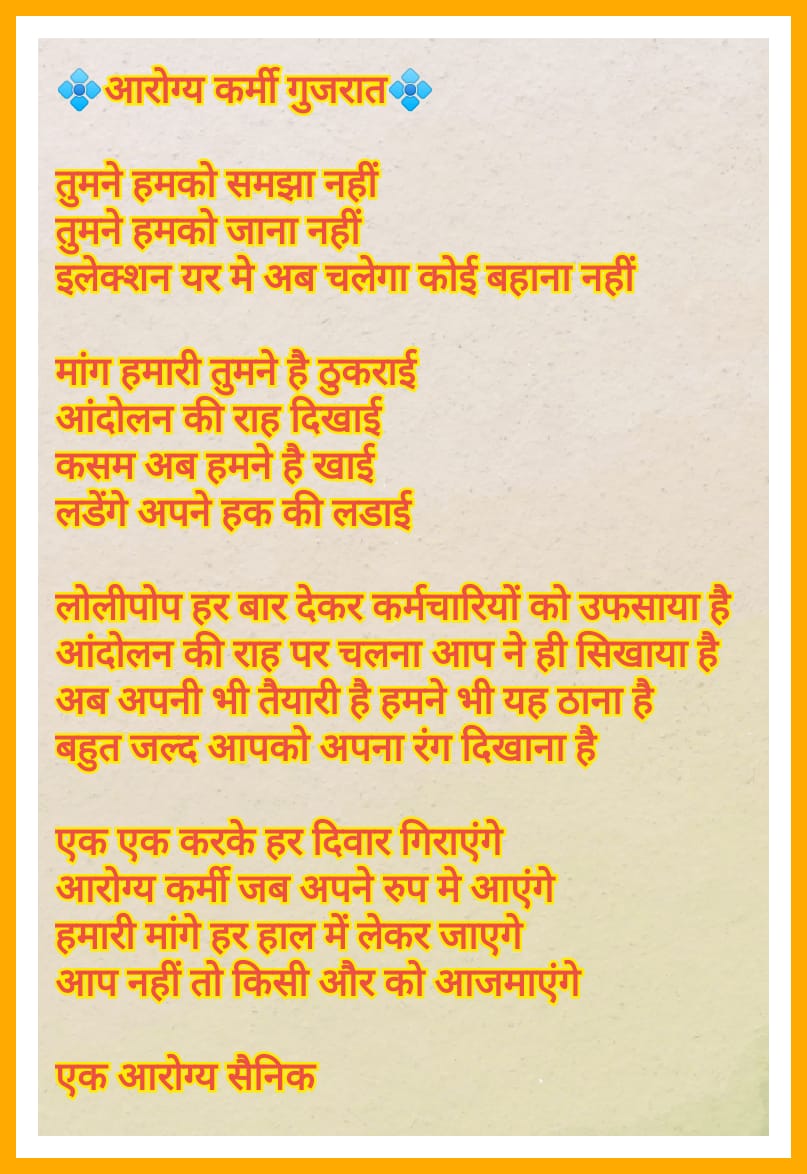 💠आरोग्य कर्मी गुजरात💠
तुमने हमको समझा नहीं
तुमने हमको जाना नहीं
इलेक्शन यर मे अब चलेगा कोई बहाना नहीं
मांग हमारी तुमने है ठुकराई
आंदोलन की राह दिखाई
कसम अब हमने है खाई
लडेंगे अपने हक की लडाई
लोलीपोप हर बार देकर कर्मचारियों को उफसाया है
आंदोलन की राह पर चलना आप ने ही सिखाया है
अब अपनी भी तैयारी है हमने भी यह ठाना है
बहुत जल्द आपको अपना रंग दिखाना है
एक एक करके हर दिवार गिराएंगे
आरोग्य कर्मी जब अपने रुप मे आएंगे
हमारी मांगे हर हाल में लेकर जाएगे
आप नहीं तो किसी और को आजमाएंगे
एक आरोग्य सैनिक